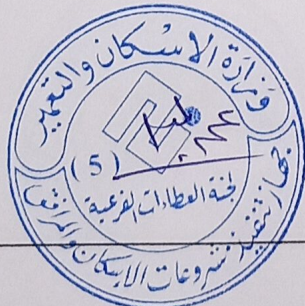 وزارة الاسكان والتعمير
(5)
لجنة العطاءات الفرعية
جهاز تنفيذ مشروعات الاسكان والمرافق